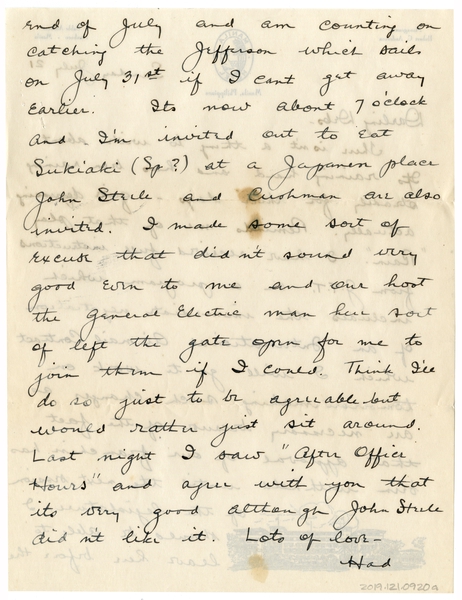 end of July and am counting on
catching the Jefferson which sails
on July 31st if I cant get away
earlier. Its now about 7 o'clock
and I'm invited out to eat
Sukiaki (Sp?) at a Japanese place
John Steele and Cushman are also
invited. I made some sort of
excuse that didn't sound very
good even to me and our host
the General Electric man her sort
of left the gate open for me to
join them if I could. Think I'll
do so just to be agreeable but
would rather just sit around.
Last night I saw "After Office
Hours" and agree with you that
its very good although John Steele
didn't like it. Lots of love-
Had
2019.121.0920a